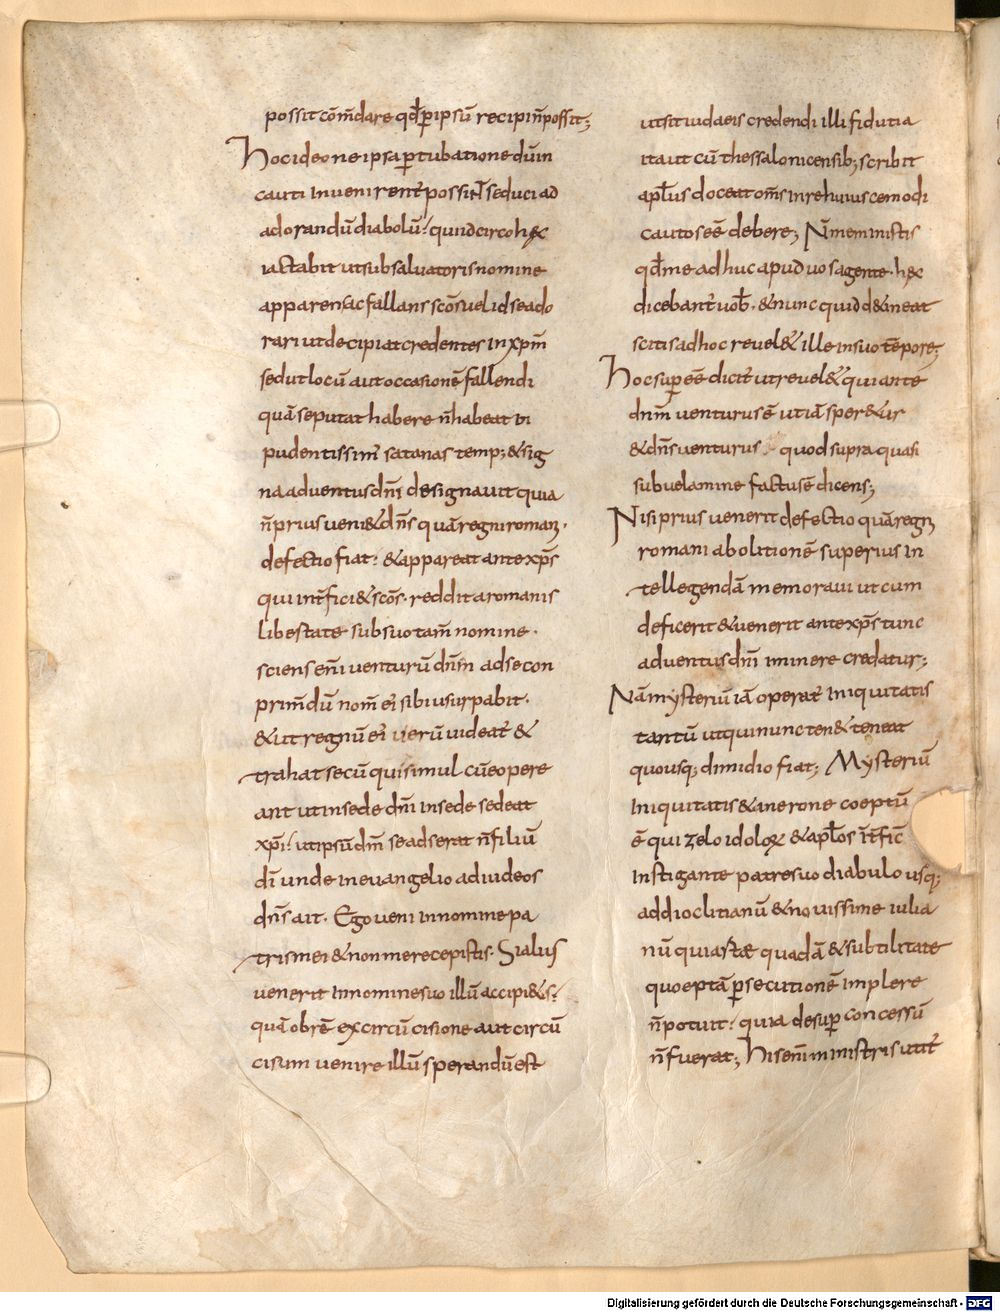 possit com̄dare qd̄ ꝑ ipsū recipi n̄ possit;
Hoc ideo ne ipsa ꝑtubatione dūm
cauti invenirent᷑ possint seduci ad
adorandū diabolū! quid circo hæc
iactabit ut sub salvatoris nomine
apparens ac fallans scōs velid se ado
rari ut decipiat credentes in xp̄m
sed ut locū aut occasionē fallendi
quā se putat habere n̄ habeat
pudentissim᷑ satanas temp; & sig
na adventus dn̄i designavit quia
n̄ prius veni& dn̄s quā regni romanꝝ·
defectio fiat! & appareat antexp̄s
qui int̄fici& scōs· reddita romanis
libestate sub suo tam̄ nomine·
sciens enī venturū dn̄m ad se con
prim̄dū nom̄ ei᷑ sibi usurpabit·
& ut regnū ei᷑ verū videat᷑ &
trahat secū qui simul cū eo pere
ant ut in sede dn̄i in sede sedeat
xp̄i! ut ipsū dm̄ se adserat n̄ filiū
dī unde in evangelio ad iudeos
dn̄s ait· Ego veni in nomine pa
tris mei & non me recepistis· Si alius
venerit in nomine suo illū accipi&is!
quā obrē ex circū cisione aut circū
cisum venire illū sperandū est
ut sit iudaeis credendi illi fidutia
ita ut cū thessalonicensib; scribit
apl̄us doceat om̄s in re huiuscemodi
cautos eē debere; N̄ meministis
qd̄ me adhuc apud vos agente· hæc
dicebant᷑ vob̄· & nunc quid d&ineat
scitis ad hoc revel& ille in suo tēpore;
Hoc sup eē dicit᷑ ut revel& qui ante
dn̄m venturus ē ut iā sper&ur
& dn̄s venturus quod supra quasi
sub velamine factus ē dicens;
Nisi prius venerit defectio quā regn̄
romani abolitionē superius in
tellegendā memoravi ut cum
deficerit & venerit antexp̄s tunc
adventus dn̄i iminere credatur;
Nā mysteriū iā operat᷑ iniquitatis
tantū ut qui nunc ten& teneat
quousq; dimidio fiat; Mysteriū
iniquitatis & in erone coeptū
ē qui zelo idoloꝝ & apl̄os int̄fic̄
instigante patre suo diabulo usq;
ad dioclitianū & novissime iulia
nū qui astæ quadā & subtilitate
quo eptā ꝑsecutionē implere
n̄ potuit! quia desup concessū
n̄ fuerat; His enī ministris utit᷑
Digitalisierung gefördert durch die Deutsche Forschungsgemeinschaft - DFG